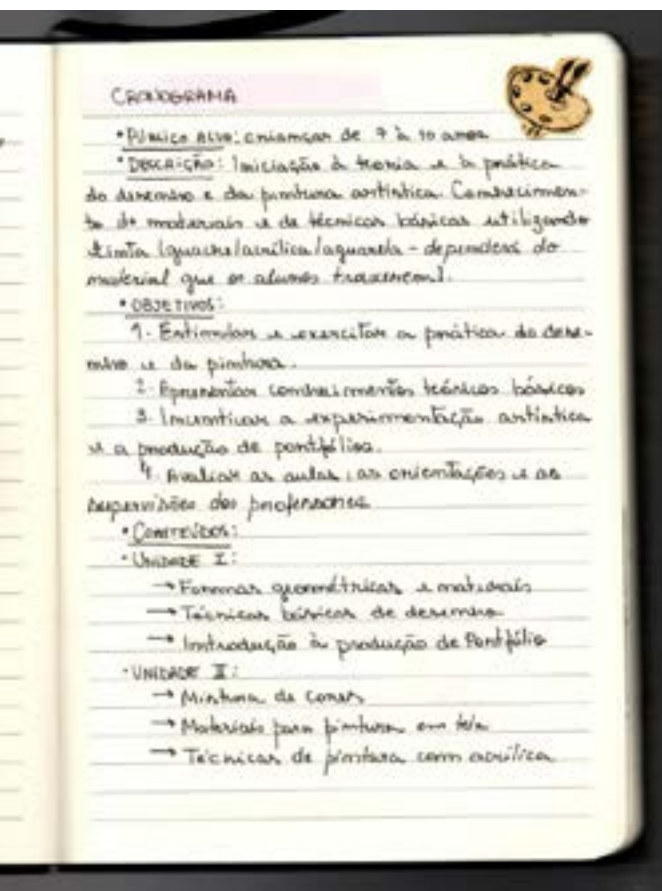 CRONOGRAMA
• PÚBLICO ALVO: crianças de 7 à 10 anos
• DESCRIÇÃO: Iniciação à teoria e à prática
do desenho e da pintura artística. Conhecimen-
to de materiais e de técnicas básicas utilizando
tinta (guache/acrílica/aquarela - dependerá do
material que os alunos trouxerem).
• OBJETIVOS:
1- Estimular e exercitar a prática do dese-
nho e da pintura.
2- Apresentar conhecimentos teóricos básicos
3- Incentivar a experimentação artística
e a produção de portfólios.
4- Avaliar as aulas, as orientações e as
supervisões dos professores
• CONTEÚDOS:
• UNIDADE I:
→ Formas geométricas e materiais
→ Técnicas básicas de desenho
→ Introdução à produção de Portfólio
• UNIDADE II:
→ Mistura de cores
→ Materiais para pintura em tela
→ Técnicas de pintura com acrílica